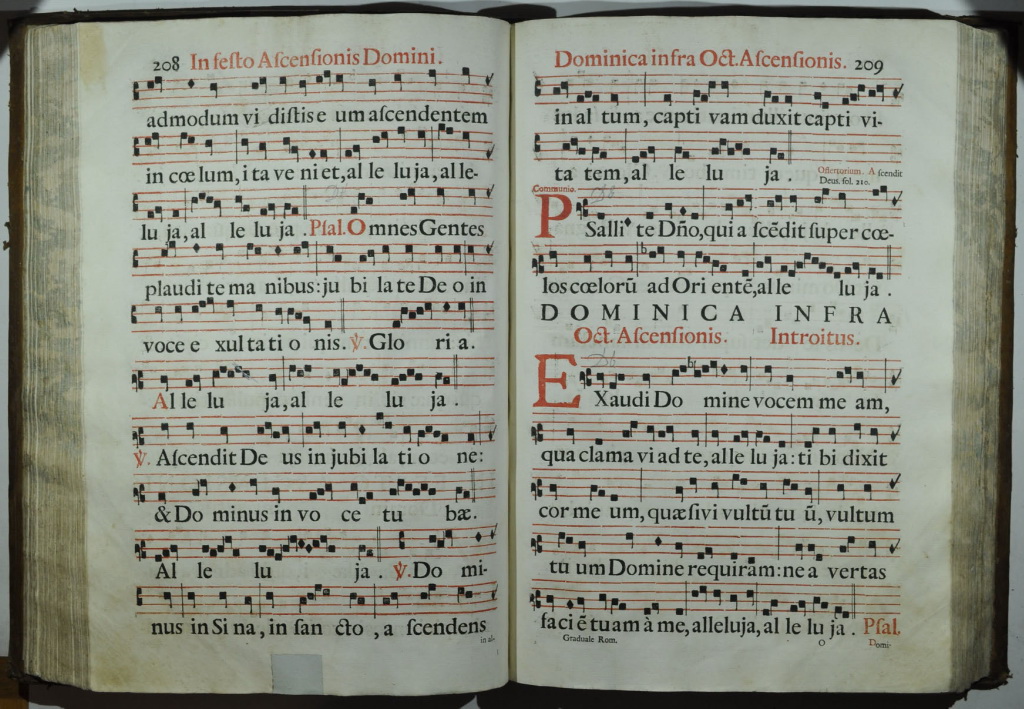 208 In festo Ascensionis Domini.
admodum vi distis e um ascendentem
in cœ lum, i ta ve ni et, al le lu ja, al le-
lu ja, al le lu ja . Psal. Omnes Gentes
plaudi te ma nibus: ju bi la te De o in
voce e xul ta ti o nis. ℣. Glo ri a.
Al le lu ja, al le lu ja .
℣. Ascendit De us in jubi la ti o ne:
& Do minus in vo ce tu bæ.
Al le lu ja . ℣. Do mi-
nus in Si na, in san cto , a scendens
in al-
Dominica infra Oct. Ascensionis. 209
in al tum, capti vam duxit capti vi-
ta tem, al le lu ja . Offertorium. A scendit
Deus. fol. 210.
Communio.
P Salli te Dño, qui a scēdit super cœ-
los cœlorū ad Ori entē, al le lu ja .
DOMINICA INFRA
Oct. Ascensionis. Introitus.
E Xaudi Do mine vocem me am,
qua clama vi ad te, al le lu ja: ti bi dixit
cor me um, quæsivi vultū tu ū, vultum
tu um Domine requiram: ne a vertas
faci ē tuam à me, alleluja, al le lu ja . Psal.
Graduale Rom. O Domi-